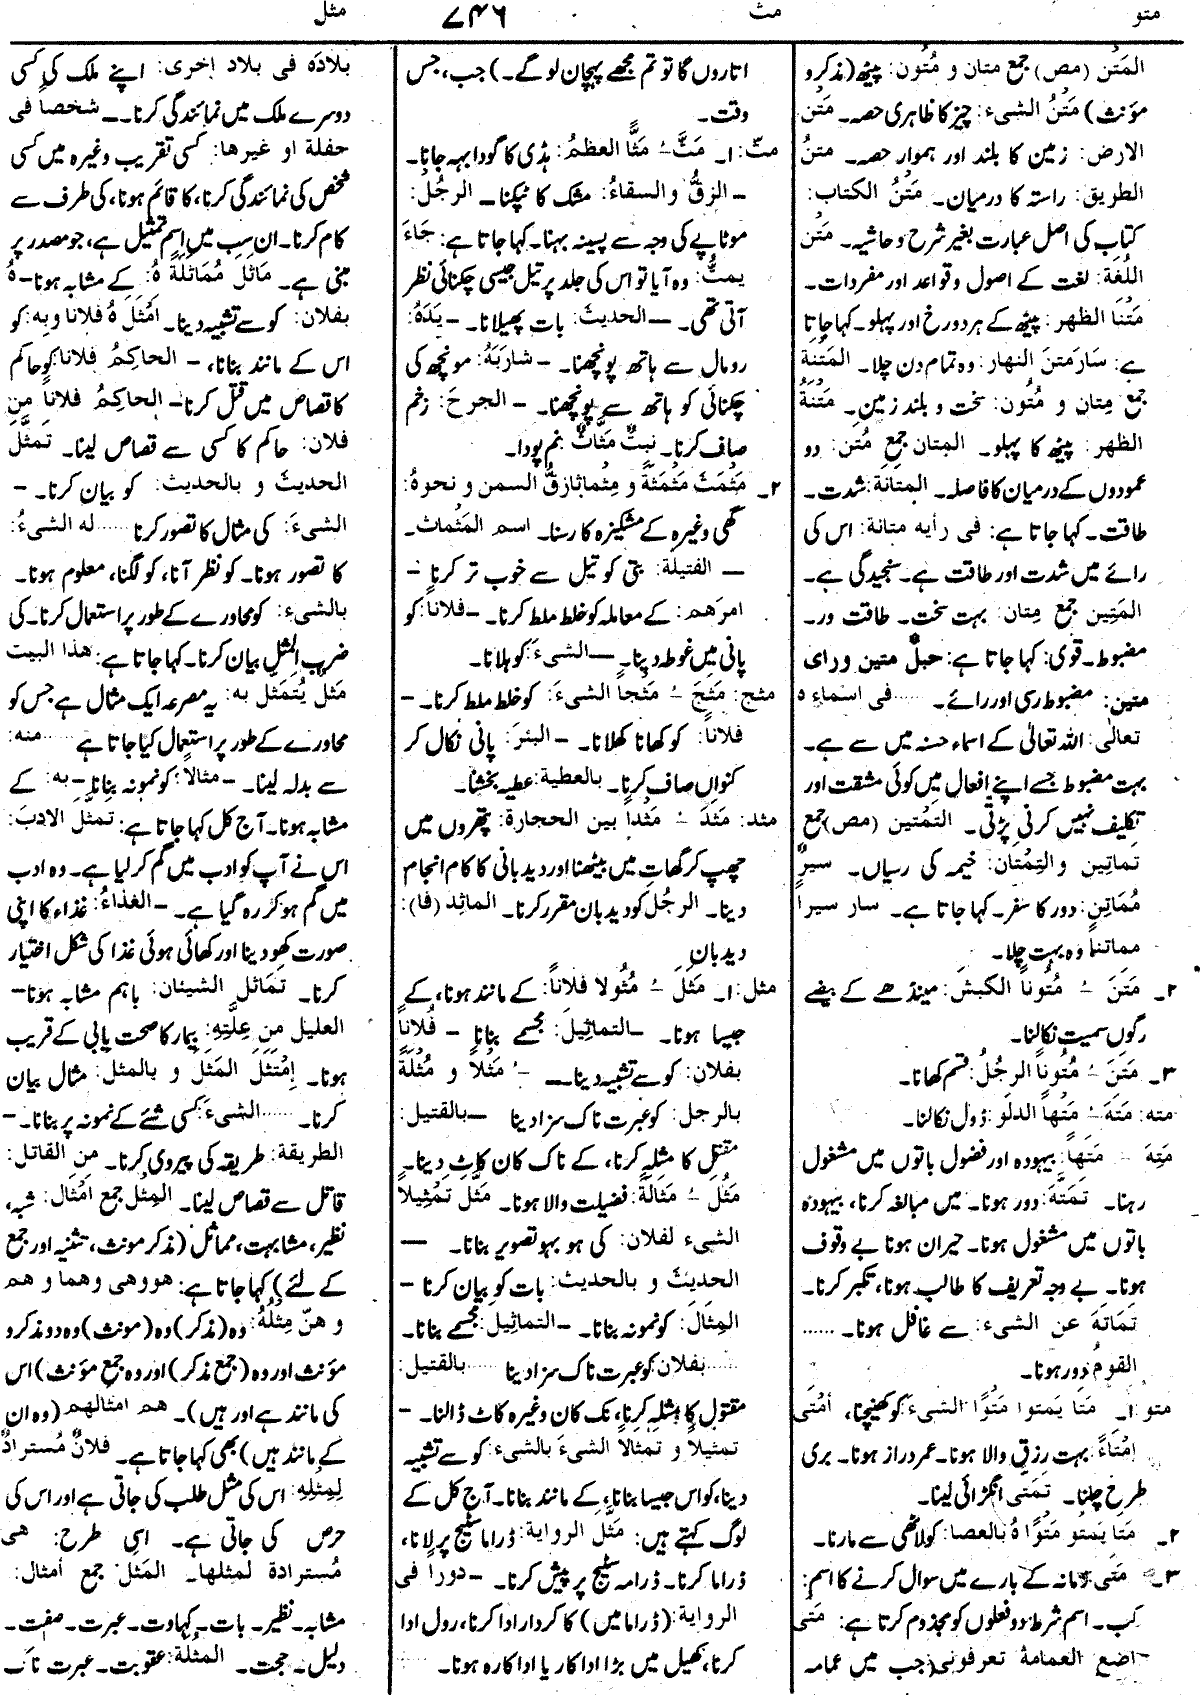 متو
مث
۷۴۶
مثل
المَتْن (مص) جمع متان و مُتُون: پیٹھ (مذکر و
مؤنث) مَتْنُ الشیء: چیز کا ظاہری حصہ۔ مَتْنُ
الارض: زمین کا بلند اور ہموار حصہ۔ متنُ
الطریق: راستہ کا درمیان۔ مَتْنُ الکتاب:
کتاب کی اصل عبارت بغیر شرح و حاشیہ۔ مَتْن
اللُّغَة: لغت کے اصول و قواعد اور مفردات۔
مَتْنَا الظهر: پیٹھ کے ہر دو رخ اور پہلو۔ کہا جاتا
ہے: سَارَ مَتنَ النهار: وہ تمام دن چلا۔ المَتْنَة
جمع مِتان و مُتُون: سخت و بلند زمین۔ مَتْنَةُ
الظهر: پیٹھ کا پہلو۔ المِتان جمع مُتُن: دو
عمودوں کے درمیان کا فاصلہ۔ المِتَانَة: شدت۔
طاقت۔ کہا جاتا ہے: فی رأیه متانة: اس کی
رائے میں شدت اور طاقت ہے۔ سنجیدگی ہے۔
المَتِین جمع مِتان: بہت سخت۔ طاقت ور۔
مضبوط۔ قوی: کہا جاتا ہے: حبلٌ متین و رای
متین: مضبوط رسی اور رائے۔ ...... فی اسماءِ ہ
تعالٰی: اللہ تعالٰی کے اسماء حسنہ میں سے ہے۔
بہت مضبوط جسے اپنے افعال میں کوئی مشقت اور
تکلیف نہیں کرنی پڑتی۔ التَمْتین (مص) جمع
تماتین والتِمْتَان: خیمہ کی رسیاں۔ سیرٌ
مُمَاتِن: دور کا سفر۔ کہا جاتا ہے۔ سار سیرا
مماتنا وہ بہت چلا۔
۲۔ مَتَنَ ـُ مُتُوناً الکبش: مینڈھے کے بیضے
رگوں سمیت نکالنا۔
۳۔ مَتَنَ ـُ مُتُوناً الرجُلُ: قسم کھانا۔
مته: مَتَهَ ـَ مَتْهاً الدلو: ڈول نکالنا۔
مَتِهَ ـَ مَتَهاً: بیہودہ اور فضول باتوں میں مشغول
رہنا۔ تَمَتَّهَ: دور ہونا۔ میں مبالغہ کرنا، بیہودہ
باتوں میں مشغول ہونا۔ حیران ہونا بے وقوف
ہونا۔ بے وجہ تعریف کا طالب ہونا، تکبر کرنا۔
تَمَاتَهَ عن الشیء: سے غافل ہونا۔ ......
القومُ دور ہونا۔
متو: ۱۔ مَتَا یَمتوا مَتْوًا الشیءَ کو کھینچنا، أمْتٰی
اِمْتَاءً: بہت رزق والا ہونا۔ عمر دراز ہونا۔ بری
طرح چلنا۔ تَمَتّٰی انگڑائی لینا۔
۲۔ مَتَا یَمتو مَتْوًا ہُ بالعصا: کو لاٹھی سے مارنا۔
۳۔ مَتٰی زمانہ کے بارے میں سوال کرنے کا اسم:
کب۔ اسم شرط دو فعلوں کو مجذوم کرتا ہے: مَتٰی
اضع العمامة تعرفونی (جب میں عمامہ
اتاروں گا تو تم مجھے پہچان لو گے۔) جب، جس
وقت۔
مثّ: ۱۔ مَثَّ ـُ مَثًّا العظمُ: ہڈی کا گودا بہہ جانا۔
۔ الزِقُّ والسقاءُ: مشک کا ٹپکنا۔ الرجُلُ:
موٹاپے کی وجہ سے پسینہ بہنا۔ کہا جاتا ہے: جَاءَ
یمثُّ: وہ آیا تو اس کی جلد پر تیل جیسی چکنائی نظر
آتی تھی۔ ۔ الحدیث: بات پھیلانا۔ ۔ یَدَہُ:
رومال سے ہاتھ پونچھنا۔ ۔ شاربَهُ: مونچھ کی
چکنائی کو ہاتھ سے پونچھنا۔ ۔ الجرحَ: زخم
صاف کرنا۔ نبتٌ مَثَّاثٌ نم پودا۔
۲۔ مَثْمَثَ مَثْمَثَةً و مِثْماثازقُّ السمن و نحوہُ:
گھی وغیرہ کے مشکیزہ کا رسنا۔ اسم المَثْماث۔
۔ الفتیلة: بتی کو تیل سے خوب تر کرنا ۔
امرَهم: کے معاملہ کو خلط ملط کرنا۔ ۔ فلاناً: کو
پانی میں غوطہ دینا۔ ۔ الشیءَ کو ہلانا۔
مثج: مَثَجَ ـُ مَثْجاً الشیءَ: کو خلط ملط کرنا۔ ۔
فلاناً: کو کھانا کھلانا۔ ۔ البئرَ: پانی نکال کر
کنواں صاف کرنا۔ بالعطیة: عطیہ بخشنا۔
مثد: مَثَدَ ـُ مَثْداً بین الحجارة: پتھروں میں
چھپ کر گھات میں بیٹھنا اور دیدبانی کا کام انجام
دینا۔ الرجُلَ کو دیدبان مقرر کرنا۔ الماثِد (فا):
دیدبان
مثل: ۱۔ مَثَلَ ـُ مُثُولا فلاناً: کے مانند ہونا، کے
جیسا ہونا۔ ۔ التماثِیلَ: مجسمے بنانا ۔ فُلاناً
بفلان: کو سے تشبیہ دینا۔ ۔ ـُ مَثْلاً و مُثْلَةً
بالرجل: کو عبرت ناک سزا دینا ۔ بالقتیل:
مقتل کا مثلہ کرنا، کے ناک کان کاٹ دینا۔
مَثُلَ ـُ مَثَالَةً: فضیلت والا ہونا۔ مَثَّلَ تَمْثِیلاً
الشیء لفلان: کی ہو بہو تصویر بنانا۔ ۔
الحدیثَ و بالحدیث: بات کو بیان کرنا ۔
المِثَالَ: کو نمونہ بنانا۔ ۔ التماثیلَ: مجسمے بنانا۔
...... بفلان کو عبرت ناک سزا دینا ...... بالقتیل:
مقتول کا مثلہ کرنا، نک کان وغیرہ کاٹ ڈالنا۔ ۔
تمثیلاً و تمثالاً الشیءَ بالشیء: کو سے تشبیہ
دینا، کو اس جیسا بنانا، کے مانند بنانا۔ آج کل کے
لوگ کہتے ہیں: مَثَّلَ الروایة: ڈراما سٹیج پر لانا،
ڈراما کرنا۔ ڈرامہ سٹیج پر پیش کرنا۔ ۔ دوراً فی
الروایة: (ڈراما میں) کا کردار ادا کرنا، رول ادا
کرنا، کھیل میں بڑا اداکار یا اداکارہ ہونا۔ ......
بلادَہ فی بلاد اخری: اپنے ملک کی کسی
دوسرے ملک میں نمائندگی کرنا۔ ۔ شخصاً فی
حفلة او غیرها: کسی تقریب وغیرہ میں کسی
شخص کی نمائندگی کرنا، کا قائم ہونا، کی طرف سے
کام کرنا۔ ان سب میں اسم تمثیل ہے، جو مصدر پر
مبنی ہے۔ مَاثَلَ مُمَاثَلَةً ہُ: کے مشابہ ہونا۔ ہُ
بفلان: کو سے تشبیہ دینا۔ اَمْثَلَ ہُ فلانا و بِه: کو
اس کے مانند بنانا، ۔ الحاکِمُ فلانا: کو حاکم
کا قصاص میں قتل کرنا۔ الحاکِمُ فلاناً مِن
فلان: حاکم کا کسی سے قصاص لینا۔ تَمَثَّلَ
الحدیثَ و بالحدیث: کو بیان کرنا۔ ۔
الشیءَ: کی مثال کا تصور کرنا ...... له الشیءُ:
کا تصور ہونا۔ کو نظر آنا، کو لگنا، معلوم ہونا۔
بالشیء: کو محاورے کے طور پر استعمال کرنا۔ کی
ضرب المثل بیان کرنا۔ کہا جاتا ہے: هذا البیت
مَثَلٌ یُتَمَثَّلُ به: یہ مصرعہ ایک مثال ہے جس کو
محاورے کے طور پر استعمال کیا جاتا ہے ...... منه:
سے بدلہ لینا۔ ۔ مثالاً: کو نمونہ بنانا۔ ۔ به: کے
مشابہ ہونا۔ آج کل کہا جاتا ہے: تمثّلَ الادبَ:
اس نے آپ کو ادب میں گم کر لیا ہے۔ وہ ادب
میں گم ہو کر رہ گیا ہے۔ ۔ الغذاءُ: غذاء کا اپنی
صورت کھو دینا اور کھائی ہوئی غذا کی شکل اختیار
کرنا۔ تَمَاثَلَ الشیئان: باہم مشابہ ہونا۔
العلیل مِن عِلَّتِهِ: بیمار کا صحت یابی کے قریب
ہونا۔ اِمْتَثَلَ المَثَلَ و بالمثل: مثال بیان
کرنا۔ ...... الشیءَ: کسی شئے کے نمونہ پر بنانا۔ ۔
الطریقة: طریقہ کی پیروی کرنا۔ من القاتل:
قاتل سے قصاص لینا۔ المِثْل جمع اَمْثَال: شبہ،
نظیر، مشابہت، مماثل (مذکر مونث، تثنیہ اور جمع
کے لئے) کہا جاتا ہے: هو وهی وهما و هم
و هنّ مِثْلُهُ: وہ (مذکر) وہ (مونث) وہ دو مذکر و
مؤنث اور وہ (جمع مذکر) اور وہ جمع مؤنث) اس
کی مانند ہے اور ہیں)۔ هم امثالهم (وہ ان
کے مانند ہیں) بھی کہا جاتا ہے۔ فلانٌ مُسترادٌ
لِمثلِهِ: اس کی مثل طلب کی جاتی ہے اور اس کی
حرص کی جاتی ہے۔ اسی طرح: هی
مُسترادة لمثلها۔ المَثَل جمع أمثال:
مشابہ۔ نظیر۔ بات۔ کہاوت۔ عبرت۔ صفت۔
دلیل۔ حجت۔ المثلَة: عقوبت۔ عبرت ناک